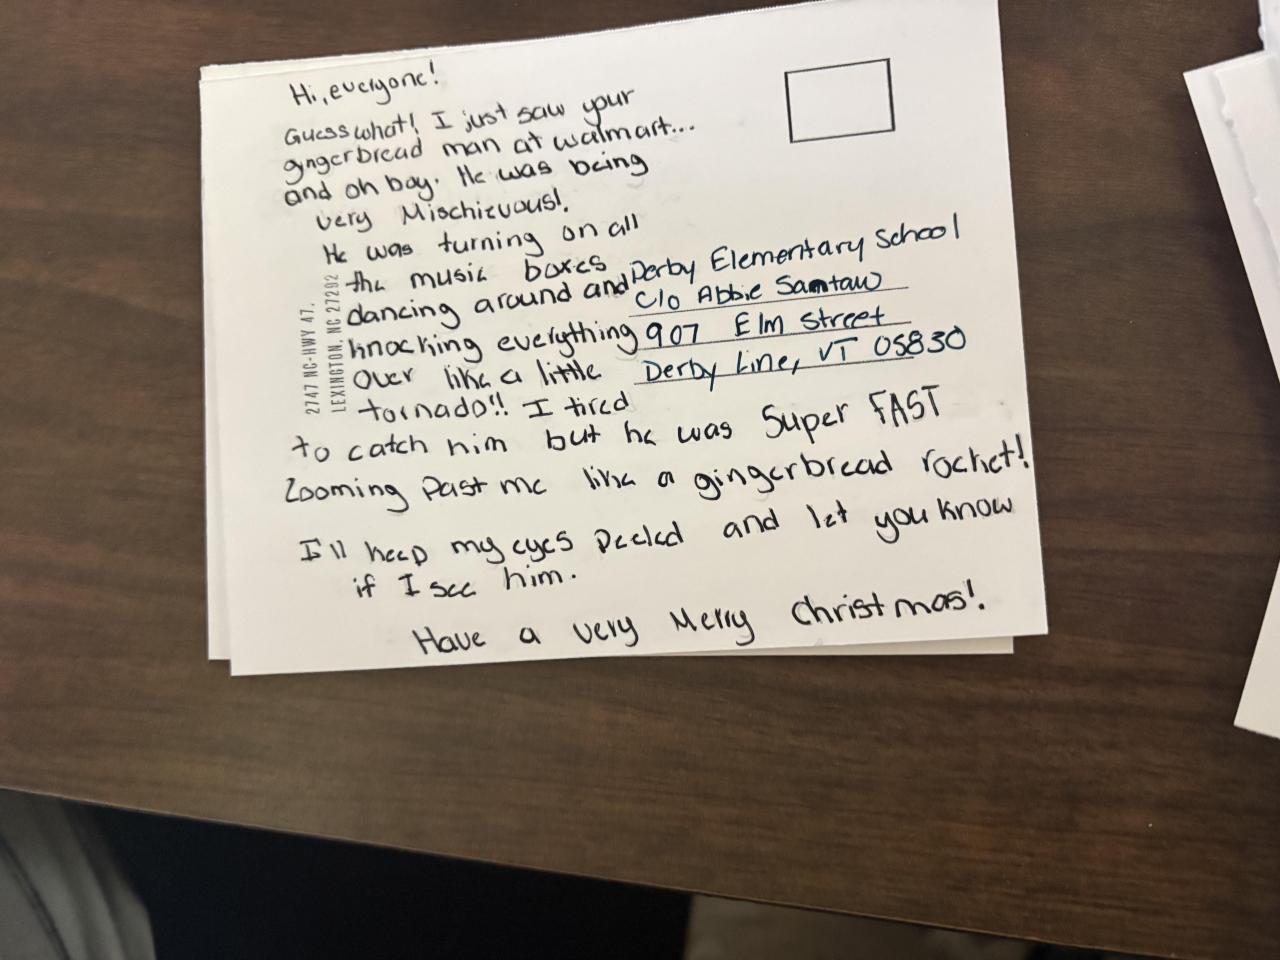 Hi, everyone!
Guess what! I just saw your
gingerbread man at walmart...
and oh boy. He was being
very Mischievous!.
He was turning on all
the music boxes
dancing around and
knocking everything
over like a little
tornado!! I tired
to catch him but he was Super FAST
Zooming Past me like a gingerbread rocket!
I'll keep my eyes Peeled and let you know
if I see him.
Have a very Merry Christmas!.
Derby Elementary School
C/o Abbie Santaw
907 Elm Street
Derby Line, VT 05830
2747 NC-HWY 47,
LEXINGTON, NC 27292